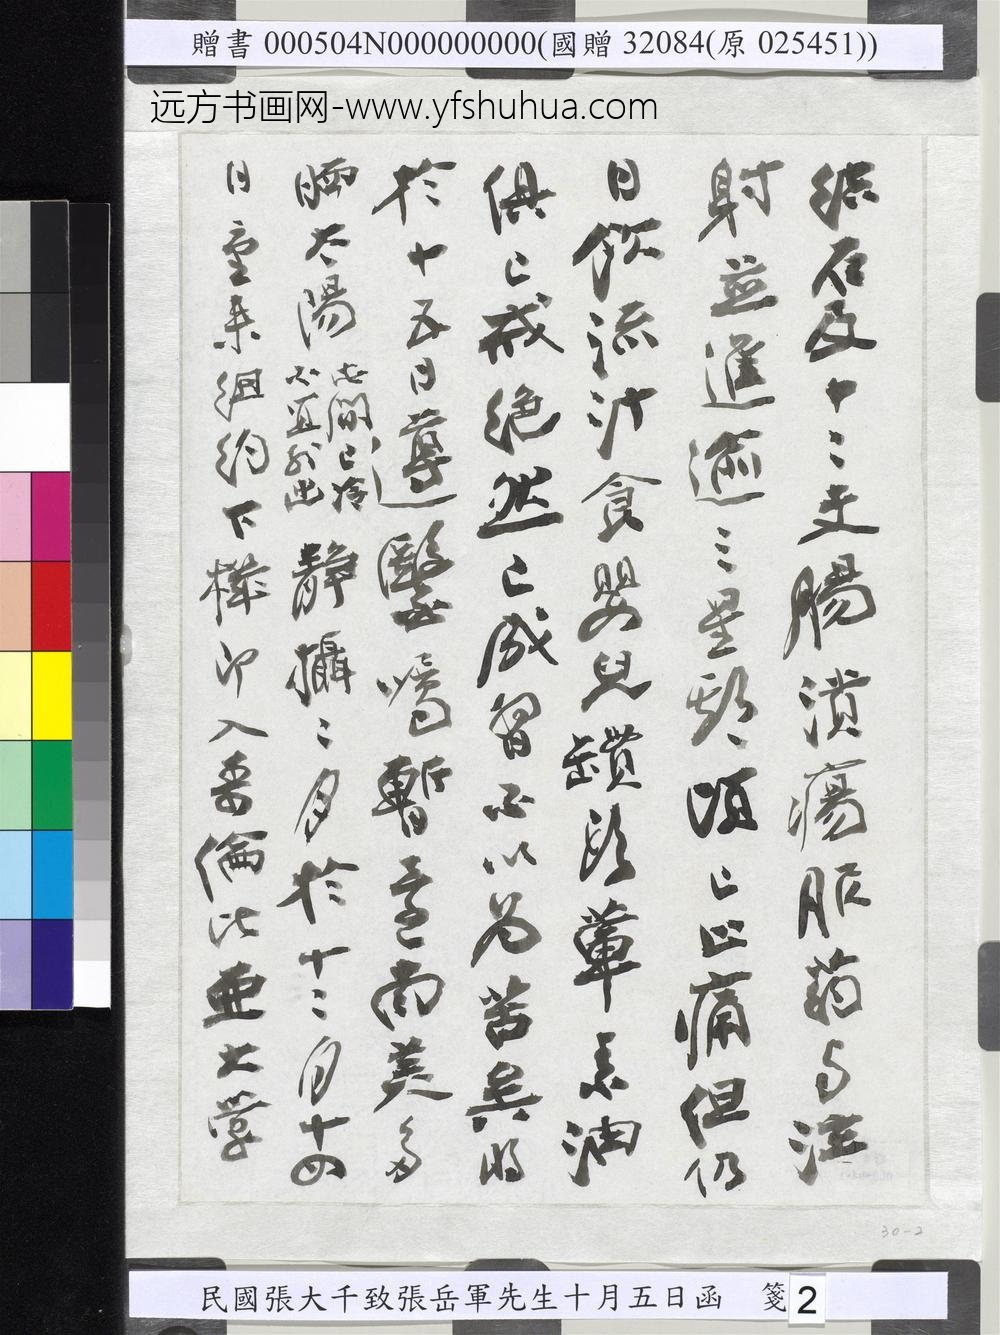 贈書 000504N000000000(國贈 32084(原 025451))
远方书画网-www.yfshuhua.com
後及十二支腸潰瘍服药与注
射並進逾三星期頃已止痛但仍
日飲流汁食嬰兒罐頭葷素油
俱已戒絕然已成習不以為苦矣將
於十五日遵醫囑暫赴南美多
晒太陽此間已冷不宜外出静攝二月於十二月十四
日重來紐約下機即入哥倫比亜大學
30-2
民國張大千致張岳軍先生十月五日函 箋 2